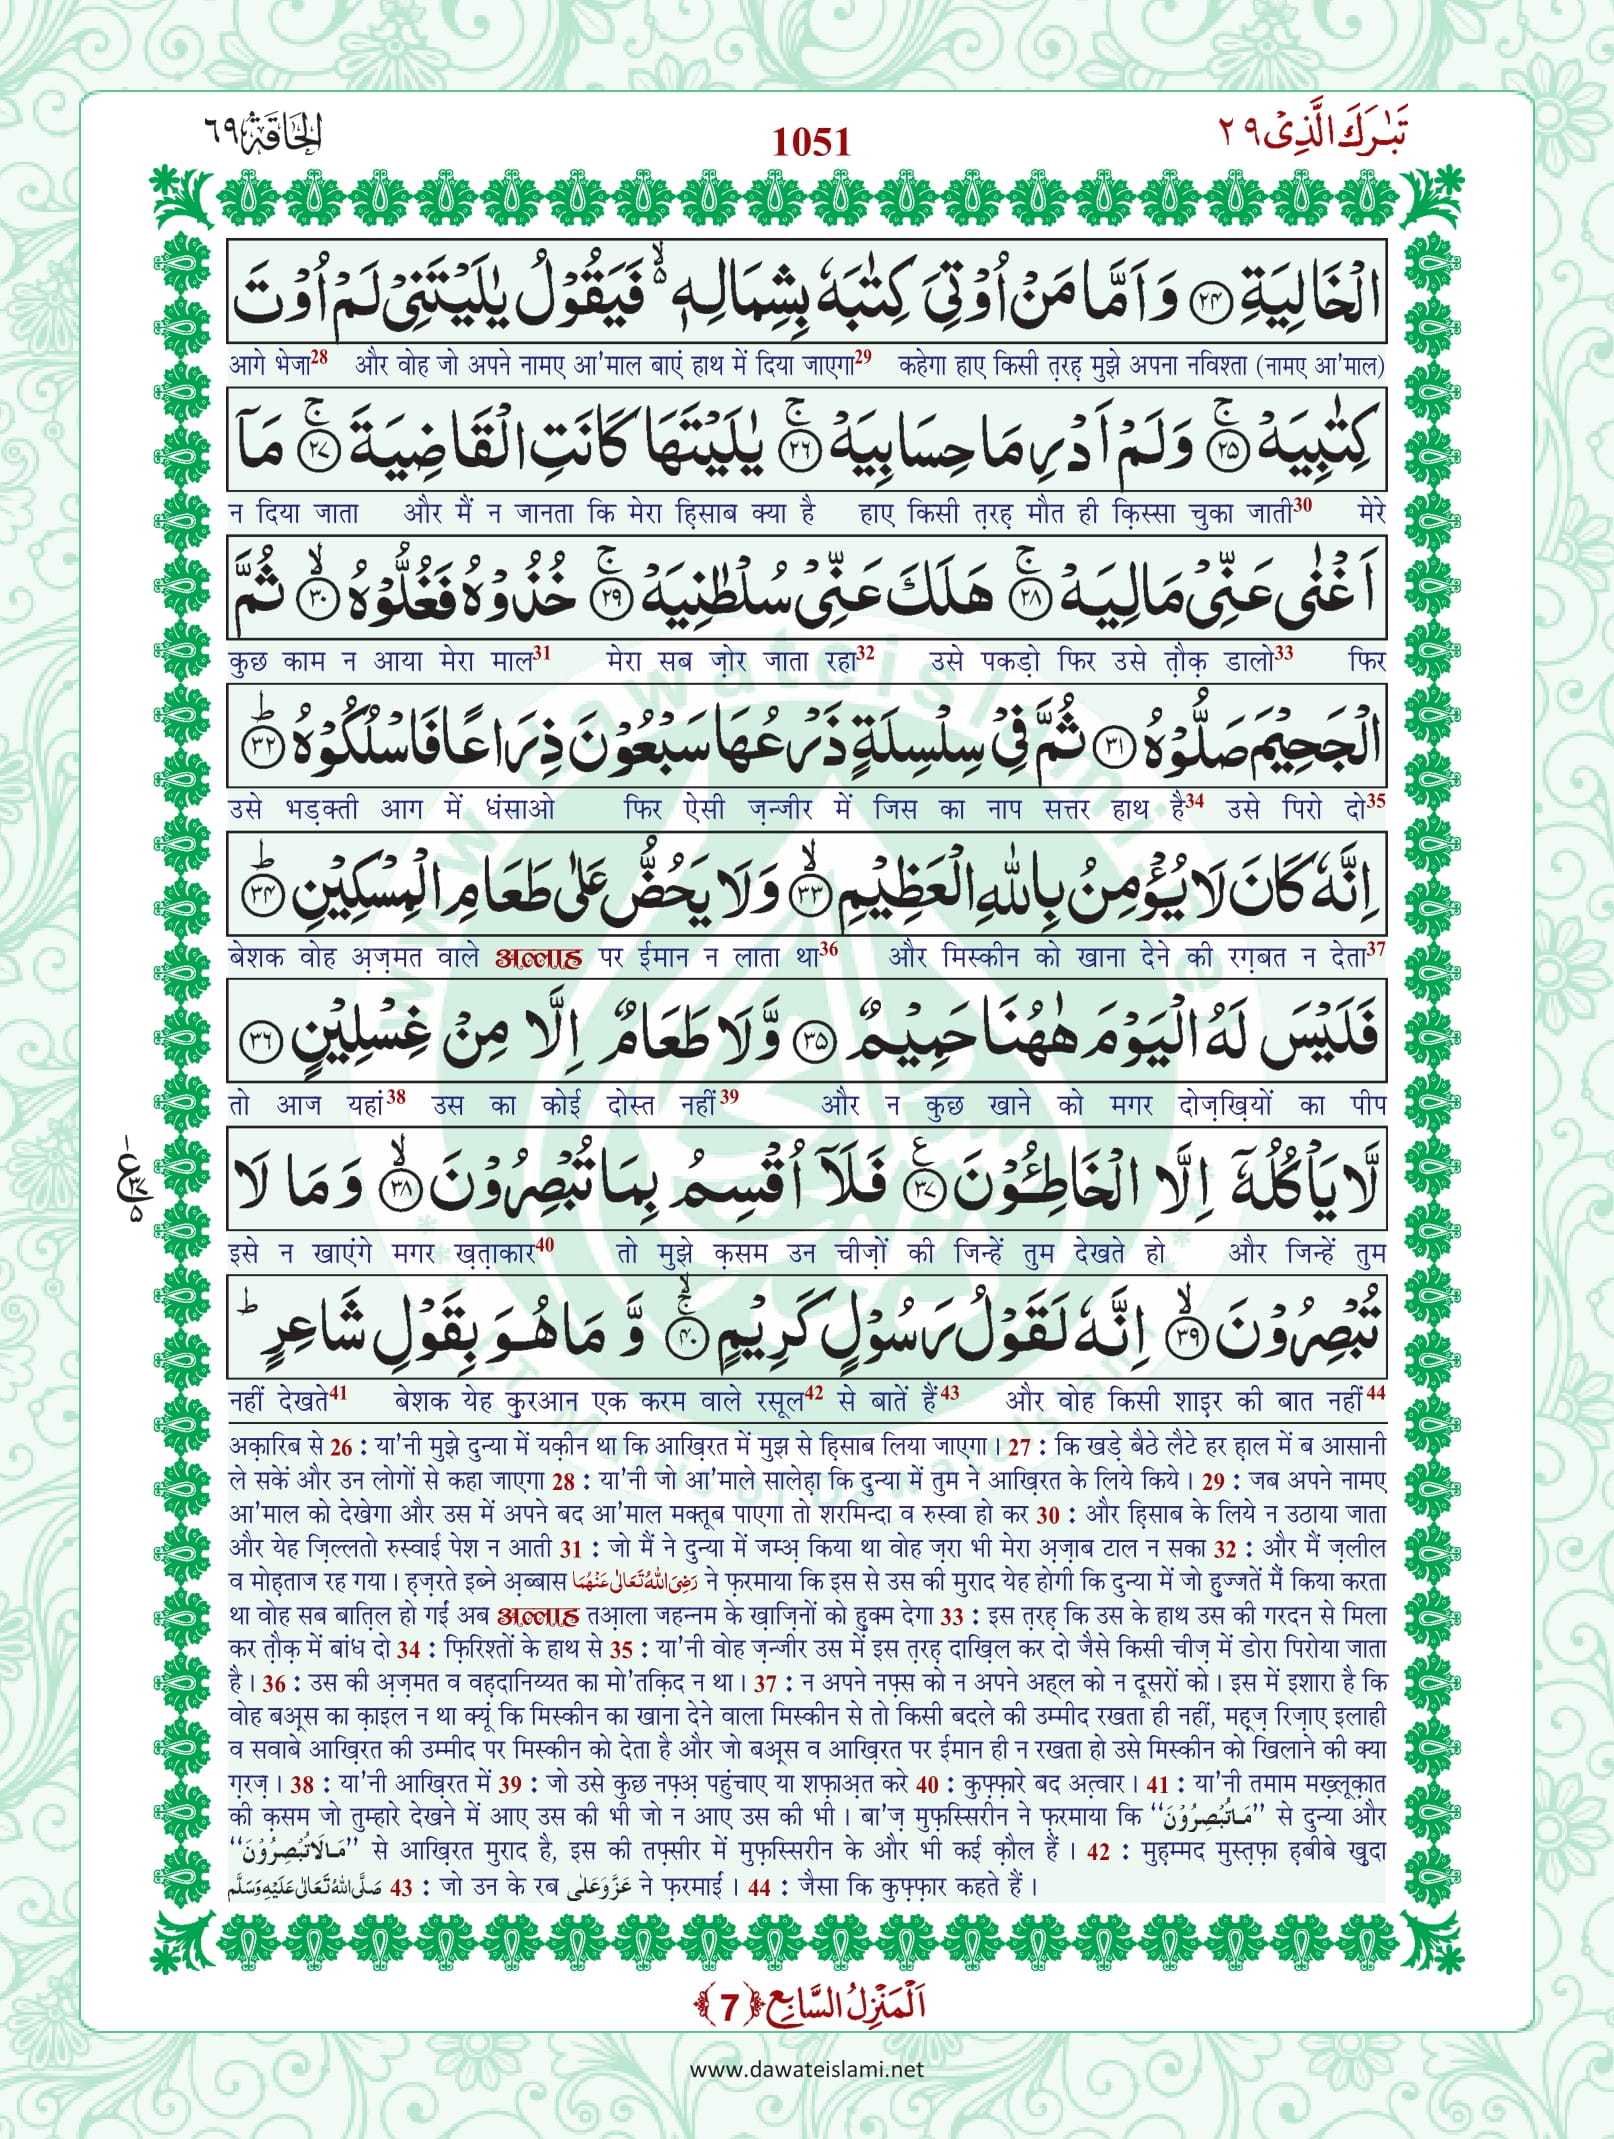 تَبٰرَكَ الَّذِیْ ٢٩
1051
اَلْحَآقَّة ٦٩
الْخَالِیَةِ ﴿۲۴﴾ وَ اَمَّا مَنْ اُوْتِیَ كِتٰبَهٗ بِشِمَالِهٖ ۙ۬ فَیَقُوْلُ یٰلَیْتَنِیْ لَمْ اُوْتَ
आगे भेजा28 और वोह जो अपने नामए आ'माल बाएं हाथ में दिया जाएगा29 कहेगा हाए किसी त़रह़ मुझे अपना नविश्ता (नामए आ'माल)
كِتٰبِیَهْ ﴿ۚ۲۵﴾ وَ لَمْ اَدْرِ مَا حِسَابِیَهْ ﴿ۚ۲۶﴾ یٰلَیْتَهَا كَانَتِ الْقَاضِیَةَ ﴿ۚ۲۷﴾ مَاۤ
न दिया जाता और मैं न जानता कि मेरा ह़िसाब क्या है हाए किसी त़रह़ मौत ही क़िस्सा चुका जाती30 मेरे
اَغْنٰی عَنِّیْ مَالِیَهْ ﴿ۚ۲۸﴾ هَلَكَ عَنِّیْ سُلْطٰنِیَهْ ﴿ۚ۲۹﴾ خُذُوْهُ فَغُلُّوْهُ ﴿ۙ۳۰﴾ ثُمَّ
कुछ काम न आया मेरा माल31 मेरा सब ज़ोर जाता रहा32 उसे पकड़ो फिर उसे त़ौक़ डालो33 फिर
الْجَحِیْمَ صَلُّوْهُ ﴿۳۱﴾ ثُمَّ فِیْ سِلْسِلَةٍ ذَرْعُهَا سَبْعُوْنَ ذِرَاعًا فَاسْلُكُوْهُ ﴿ؕ۳۲﴾
उसे भड़क्ती आग में धंसाओ फिर ऐसी ज़न्जीर में जिस का नाप सत्तर हाथ है34 उसे पिरो दो35
اِنَّهٗ كَانَ لَا یُؤْمِنُ بِاللّٰهِ الْعَظِیْمِ ﴿ۙ۳۳﴾ وَ لَا یَحُضُّ عَلٰی طَعَامِ الْمِسْكِیْنِ ﴿ؕ۳۴﴾
बेशक वोह अ़ज़मत वाले अल्लाह पर ईमान न लाता था36 और मिस्कीन को खाना देने की रग़बत न देता37
فَلَیْسَ لَهُ الْیَوْمَ هٰهُنَا حَمِیْمٌ ﴿۳۵﴾ وَّ لَا طَعَامٌ اِلَّا مِنْ غِسْلِیْنٍ ﴿۳۶﴾
तो आज यहां38 उस का कोई दोस्त नहीं39 और न कुछ खाने को मगर दोज़ख़ियों का पीप
لَّا یَاْكُلُهٗۤ اِلَّا الْخَاطِـُٔوْنَ ﴿۳۷﴾ فَلَاۤ اُقْسِمُ بِمَا تُبْصِرُوْنَ ﴿ۙ۳۸﴾ وَ مَا لَا
इसे न खाएंगे मगर ख़त़ाकार40 तो मुझे क़सम उन चीज़ों की जिन्हें तुम देखते हो और जिन्हें तुम
تُبْصِرُوْنَ ﴿ۙ۳۹﴾ اِنَّهٗ لَقَوْلُ رَسُوْلٍ كَرِیْمٍ ﴿ۚۙ۴۰﴾ وَّ مَا هُوَ بِقَوْلِ شَاعِرٍ ؕ
नहीं देखते41 बेशक येह क़ुरआन एक करम वाले रसूल42 से बातें हैं43 और वोह किसी शाइ़र की बात नहीं44
अक़ारिब से 26 : या'नी मुझे दुन्या में यक़ीन था कि आख़िरत में मुझ से ह़िसाब लिया जाएगा। 27 : कि खड़े बैठे लैटे हर ह़ाल में ब आसानी
ले सकें और उन लोगों से कहा जाएगा 28 : या'नी जो आ'माले सालेह़ा कि दुन्या में तुम ने आख़िरत के लिये किये। 29 : जब अपने नामए
आ'माल को देखेगा और उस में अपने बद आ'माल मक्तूब पाएगा तो शरमिन्दा व रुस्वा हो कर 30 : और ह़िसाब के लिये न उठाया जाता
और येह ज़िल्लतो रुस्वाई पेश न आती 31 : जो मैं ने दुन्या में जम्अ़ किया था वोह ज़रा भी मेरा अ़ज़ाब टाल न सका 32 : और मैं ज़लील
व मोह़ताज रह गया। ह़ज़रते इब्ने अ़ब्बास رَضِیَ اللهُ تَعَالٰی عَنْهُمَا ने फ़रमाया कि इस से उस की मुराद येह होगी कि दुन्या में जो ह़ुज्जतें मैं किया करता
था वोह सब बात़िल हो गईं अब अल्लाह तआ़ला जहन्नम के ख़ाज़िनों को हुक्म देगा 33 : इस त़रह़ कि उस के हाथ उस की गरदन से मिला
कर त़ौक़ में बांध दो 34 : फ़िरिश्तों के हाथ से 35 : या'नी वोह ज़न्जीर उस में इस त़रह़ दाख़िल कर दो जैसे किसी चीज़ में डोरा पिरोया जाता
है। 36 : उस की अ़ज़मत व वह़दानिय्यत का मो'तक़िद न था। 37 : न अपने नफ़्स को न अपने अहल को न दूसरों को। इस में इशारा है कि
वोह बअ़्स का क़ाइल न था क्यूं कि मिस्कीन का खाना देने वाला मिस्कीन से तो किसी बदले की उम्मीद रखता ही नहीं, मह़्ज़ रिज़ाए इलाही
व सवाबे आख़िरत की उम्मीद पर मिस्कीन को देता है और जो बअ़्स व आख़िरत पर ईमान ही न रखता हो उसे मिस्कीन को खिलाने की क्या
ग़रज़। 38 : या'नी आख़िरत में 39 : जो उसे कुछ नफ़्अ़ पहुंचाए या शफ़ाअ़त करे 40 : कुफ़्फ़ारे बद अत़्वार। 41 : या'नी तमाम मख़्लूक़ात
की क़सम जो तुम्हारे देखने में आए उस की भी जो न आए उस की भी। बा'ज़ मुफ़स्सिरीन ने फ़रमाया कि “مَا تُبْصِرُوْنَ” से दुन्या और
“مَا لَا تُبْصِرُوْنَ” से आख़िरत मुराद है, इस की तफ़्सीर में मुफ़स्सिरीन के और भी कई क़ौल हैं। 42 : मुह़म्मद मुस्त़फ़ा ह़बीबे ख़ुदा
صَلَّی اللهُ تَعَالٰی عَلَیْهِ وَسَلَّم 43 : जो उन के रब عَزَّ وَعَلٰی ने फ़रमाईं। 44 : जैसा कि कुफ़्फ़ार कहते हैं।
اَلْمَنْزِلُ السَّابِع ﴿7﴾
www.dawateislami.net